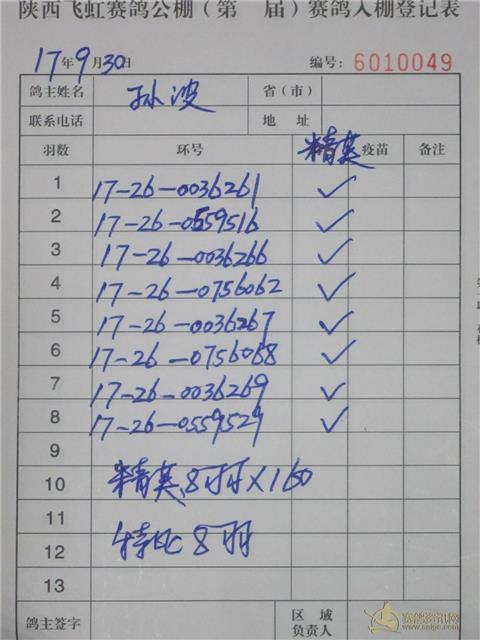 陕西飞虹赛鸽公棚（第 届）赛鸽入棚登记表
17年9月30日 编号: 6010049
鸽主姓名 孙波 省（市）
联系电话 地址
羽数 环号 精英 疫苗 备注
1 17-26-0036261 ✓
2 17-26-0559516 ✓
3 17-26-0036266 ✓
4 17-26-0756062 ✓
5 17-26-0036267 ✓
6 17-26-0756068 ✓
7 17-26-0036269 ✓
8 17-26-0559529 ✓
9
10 精英8羽×160
11
12 特比8羽
13
鸽主签字 区域负责人
赛鸽资讯网